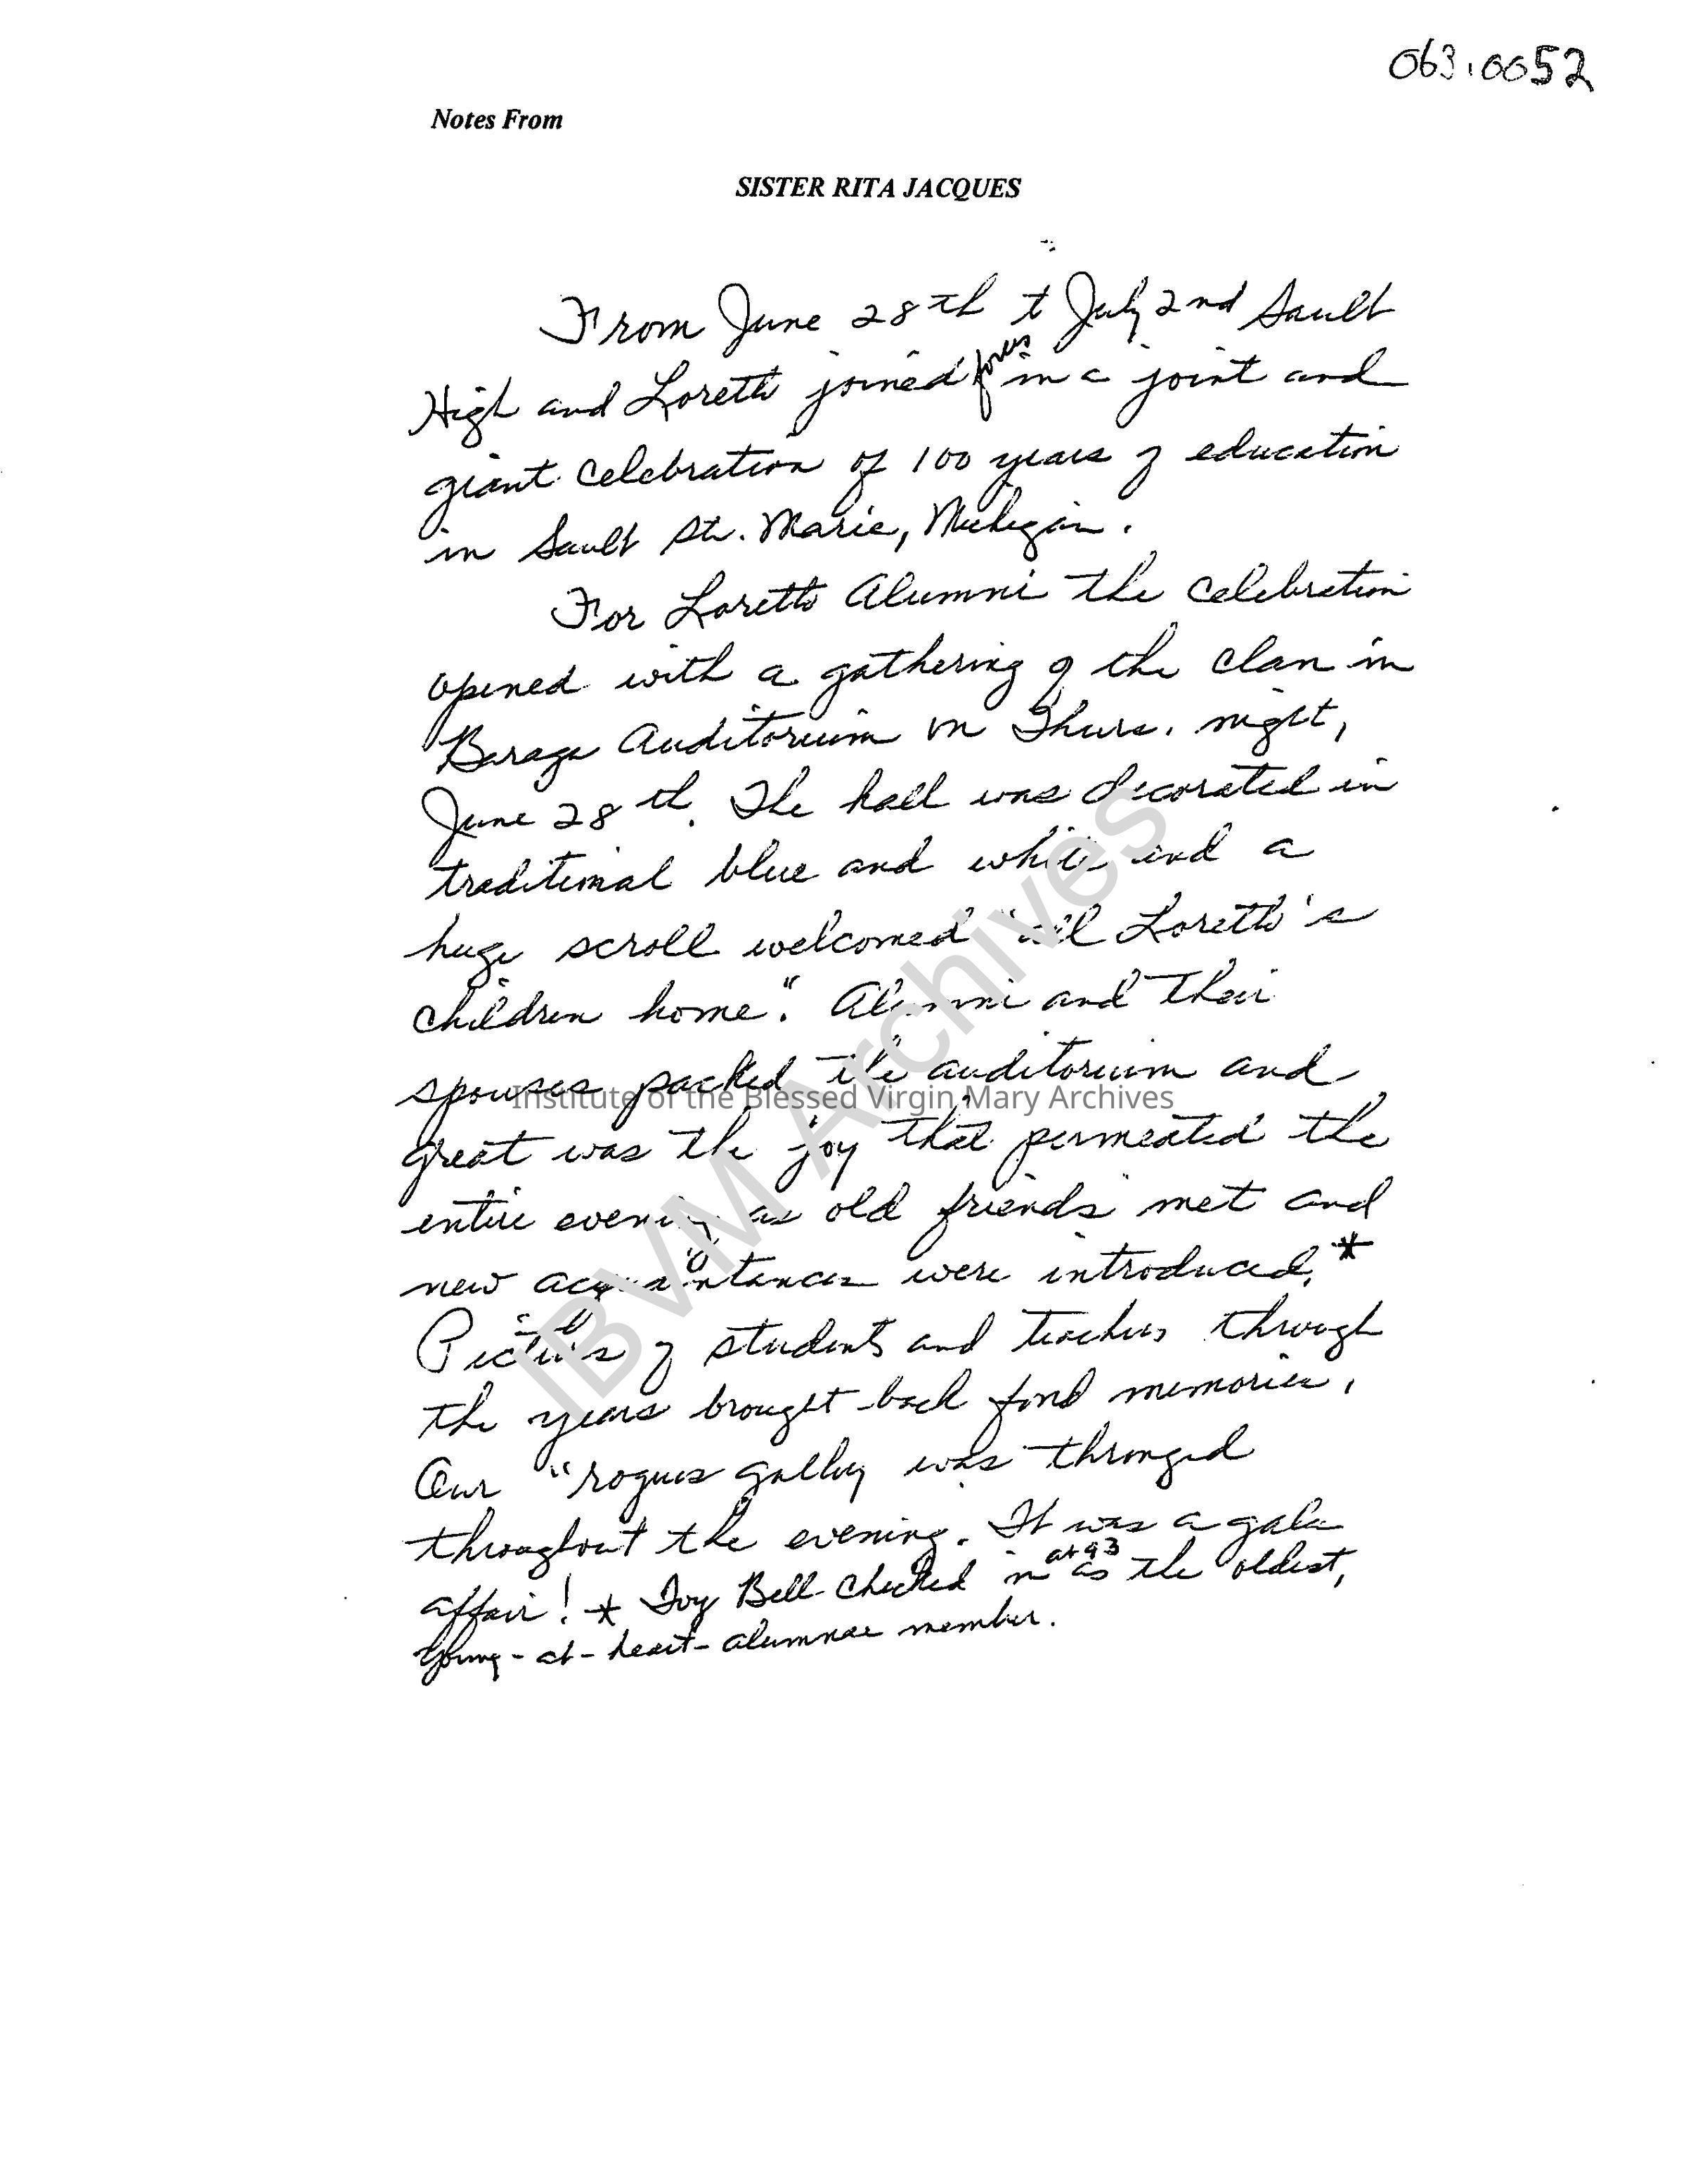 063.0052
Notes From
SISTER RITA JACQUES
From June 28th to July 2nd Sault
High and Loretto joined forces in a joint and
giant celebration of 100 years of education
in Sault Ste. Marie, Michigan.
For Loretto Alumni the celebration
opened with a gathering of the clan in
Baraga Auditorium on Thurs. night,
June 28th. The hall was decorated in
traditional blue and white and a
huge scroll welcomed "all Loretto's
children home". Alumni and their
spouses packed the auditorium and
Institute of the Blessed Virgin Mary Archives
great was the joy that permeated the
entire evening as old friends met and
new acquaintances were introduced.*
Pictures of students and teachers through
the years brought back fond memories.
Our "rogues gallery was thronged
throughout the evening. It was a gala
affair! * Ivy Bell checked in at 93 as the oldest,
young-at-heart-alumnae member.
IBVM Archives